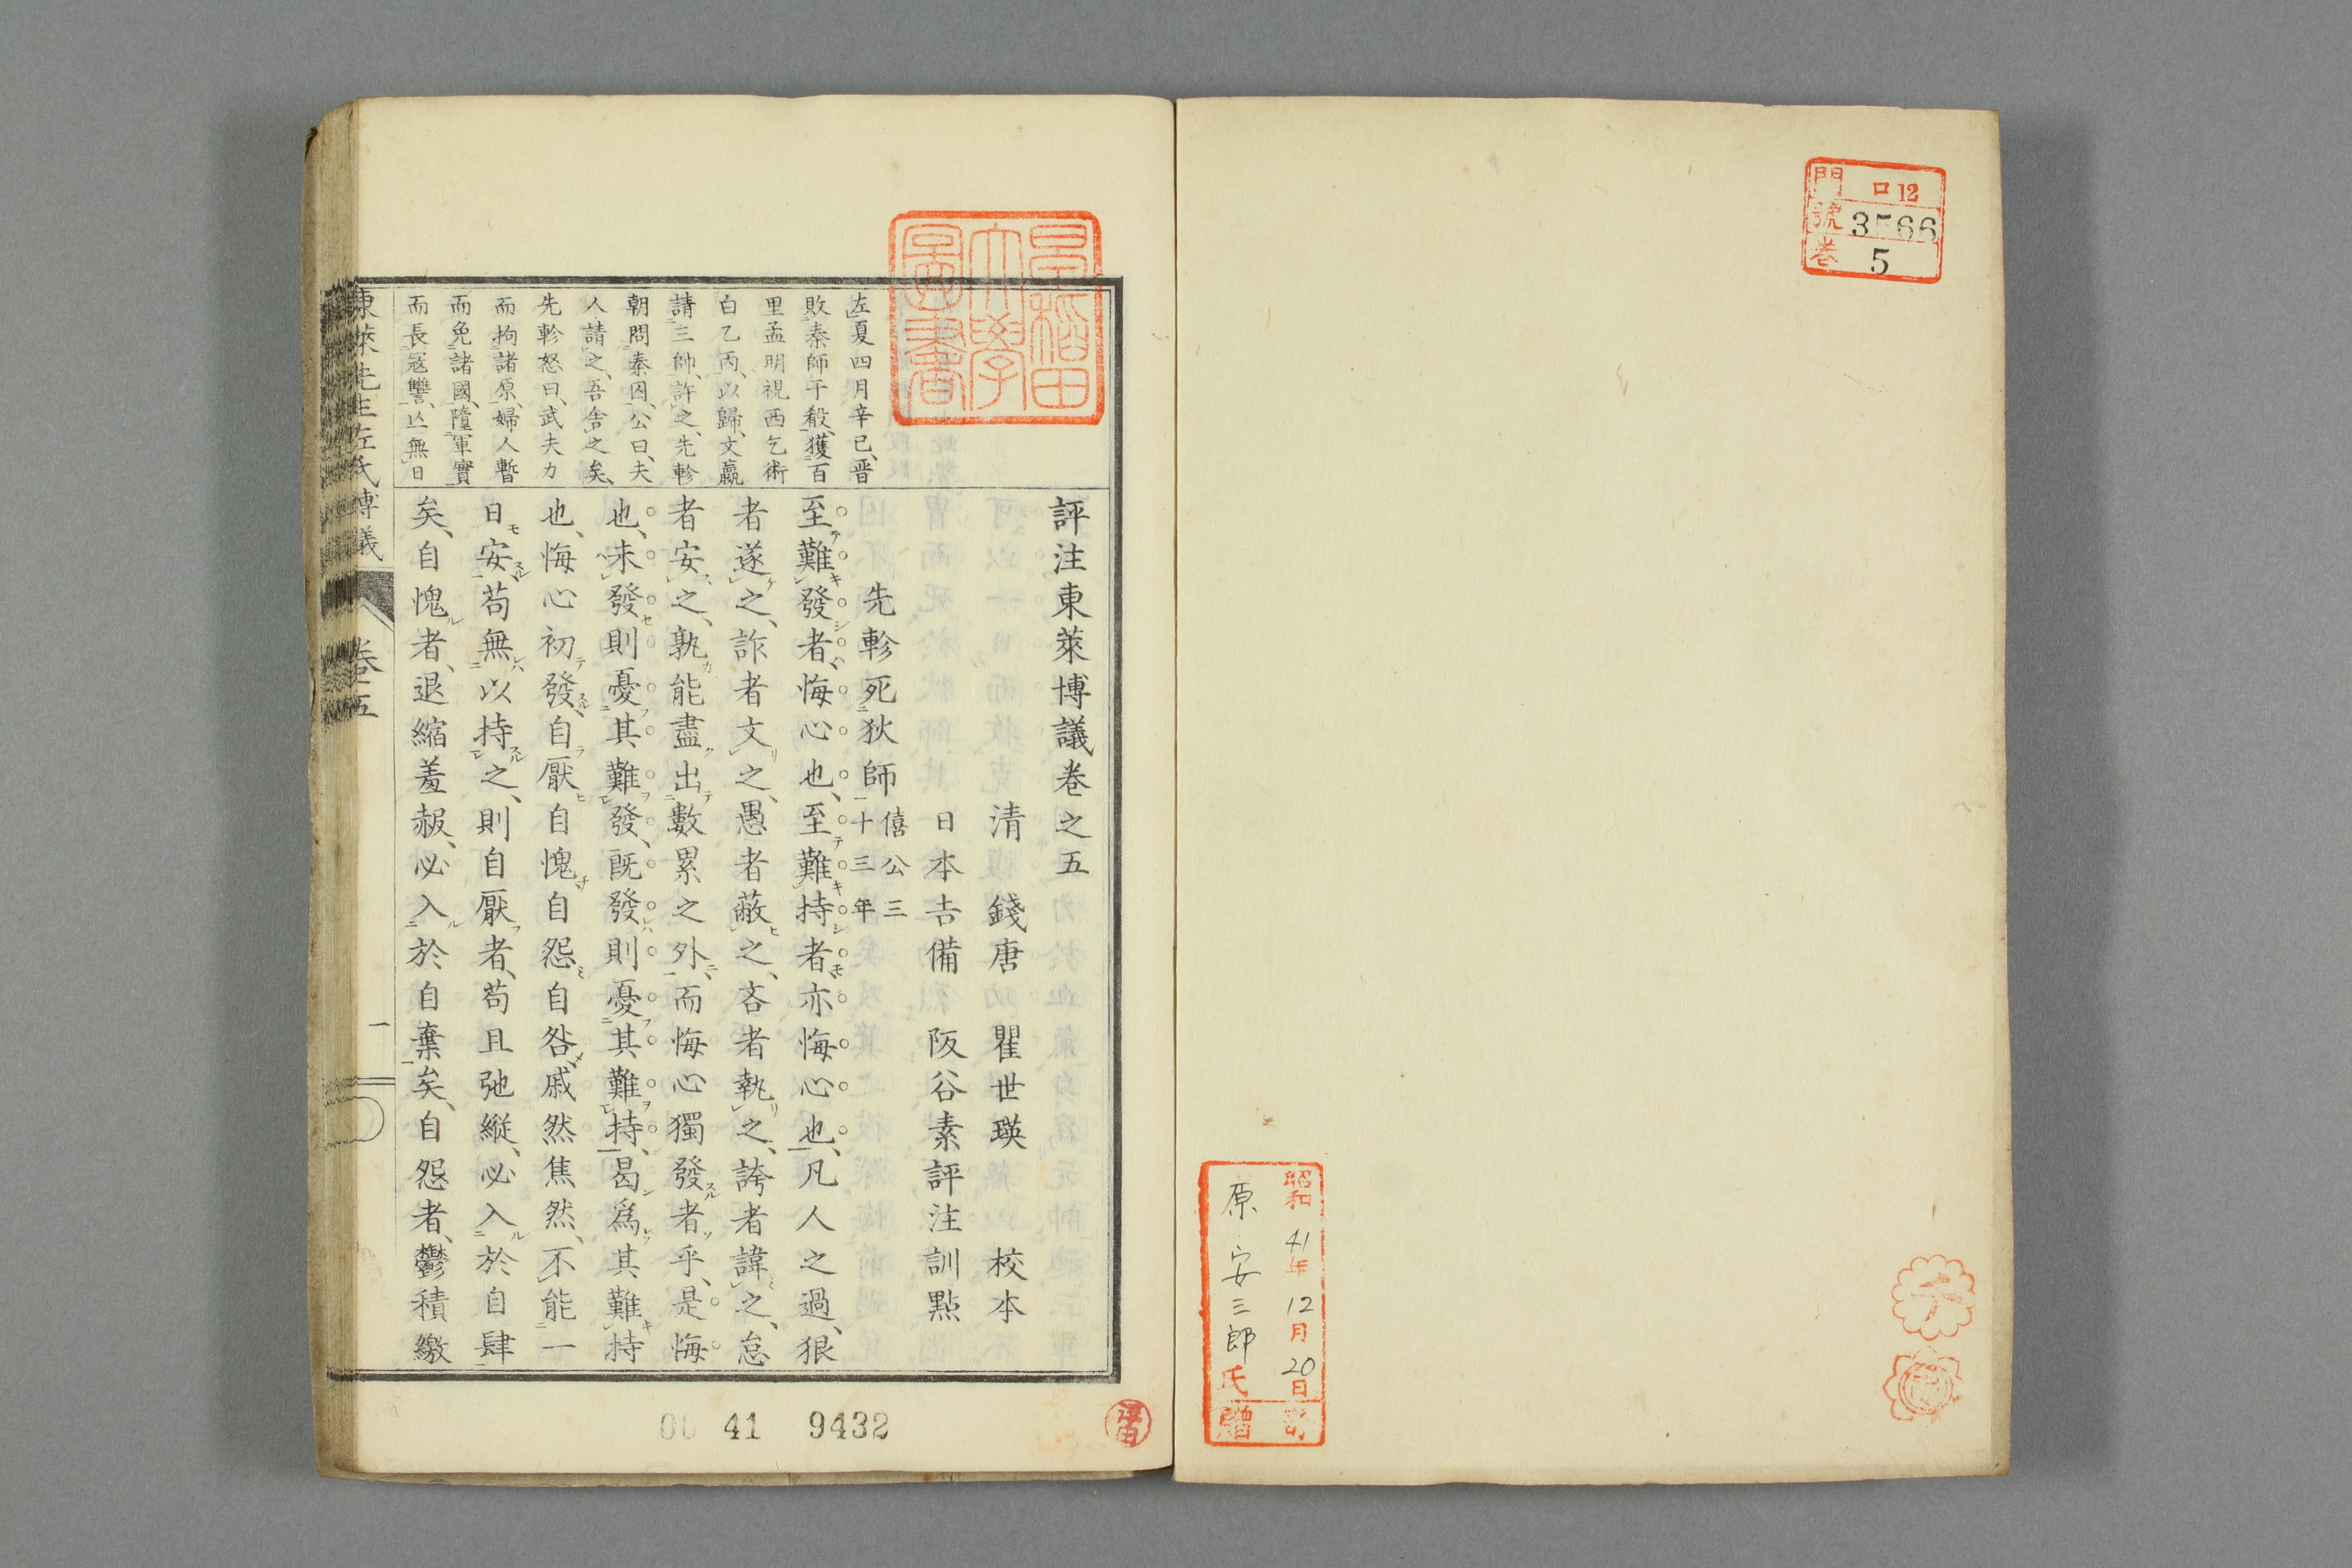 門 口12
號 3566
巻 5
昭和41年12月20日
原安三郎氏
贈
早稲田
大學
圖書
評注東萊博議卷之五
清 錢唐 瞿世瑛 校本
日本吉備 阪谷素評注訓點
先軫死狄師 僖公三十三年
至難發者悔心也、至難持者亦悔心也、凡人之過、狠
者遂之、詐者文之、愚者蔽之、吝者執之、誇者諱之、怠
者安之、孰能盡出數累之外、而悔心獨發者乎、是悔
也、未發則憂其難發、既發則憂其難持、曷爲其難持
也、悔心初發、自厭自愧自怨自咎戚然焦然、不能一
日安、苟無以持之、則自厭者、苟且弛縱、必入於自肆
矣、自愧者、退縮羞赧、必入於自棄矣、自怨者、鬱積繳
左夏四月辛巳、晋
敗秦師于殽、獲百
里孟明視西乞術
白乙丙、以歸、文嬴
請三帥、許之、先軫
朝問秦囚、公曰、夫
人請之、吾舍之矣、
先軫怒曰、武夫力
而拘諸原、婦人暫
而免諸國、墮軍實
而長寇讐、以無日
東萊先生左氏博議 卷五
一
41 9432